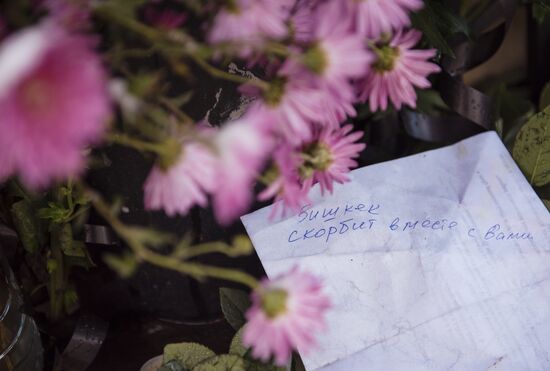 Бишкек
скорбит вместе с Вами